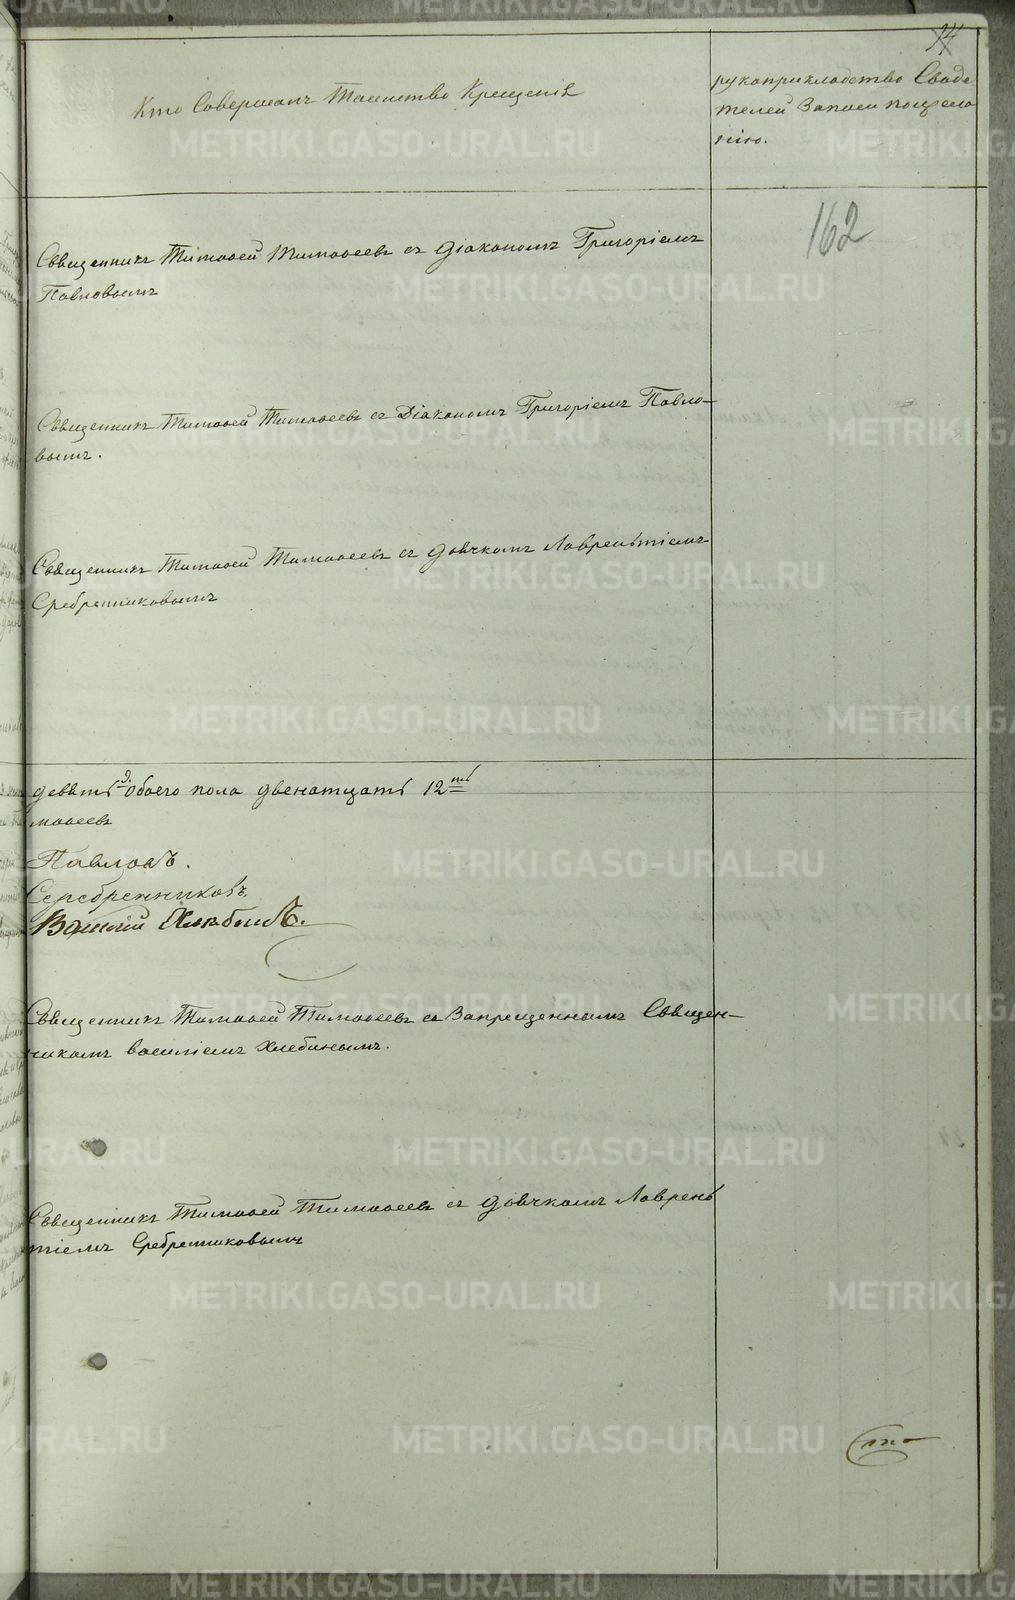 14
Кто Совершалъ Таинство Крещенія
рукоприкладство Свиде
телей Записи пожела
нію.
162
Священникъ Тимофей Тимофеевъ съ діакономъ Григоріемъ
Павловымъ
Священникъ Тимофей Тимофеевъ съ Діакономъ Григоріемъ Павло-
вымъ.
Священникъ Тимофей Тимофеевъ съ дьячкомъ Лаврентіемъ
Сребренниковымъ
девять обоего пола двенатцать 12
мофеевъ
Павловъ.
Серебренниковъ
Василій Хлебинъ.
Священникъ Тимофей Тимофеевъ съ Запрещеннымъ Священ-
никомъ василіемъ Хлебинымъ.
Священникъ Тимофей Тимофеевъ съ дьячкомъ Лаврень
тіемъ Сребренниковымъ
METRIKI.GASO-URAL.RU